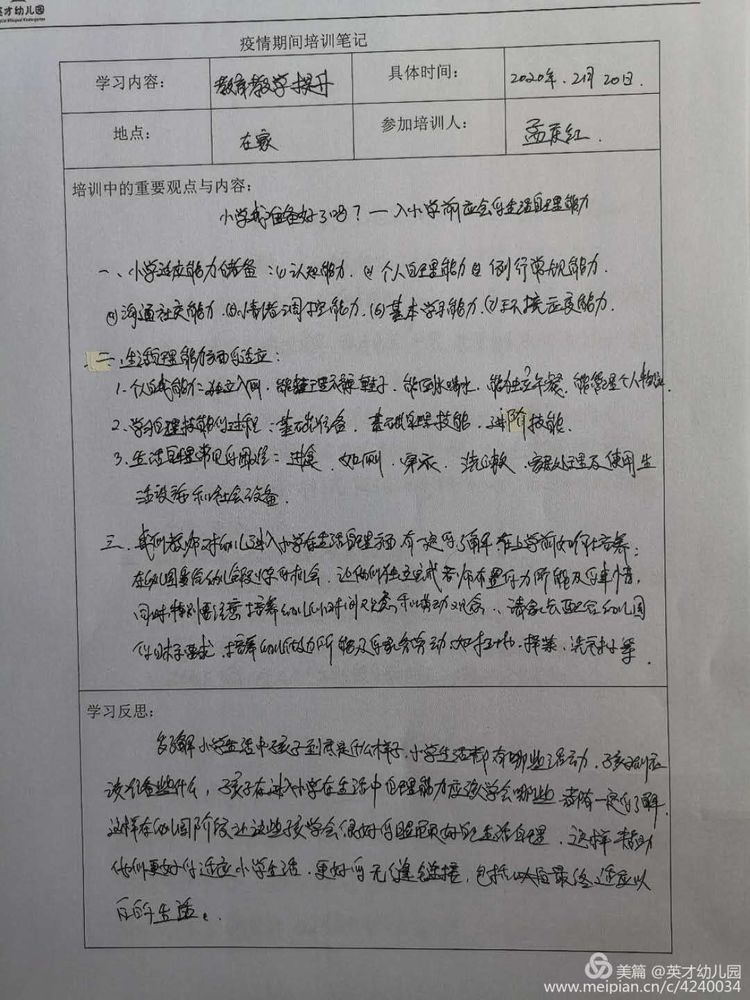 英才幼儿园
疫情期间培训笔记
学习内容： 教师教学提升 具体时间： 2020年.2月20日.
地点： 在家 参加培训人： 孟庆红.
培训中的重要观点与内容：
小学我准备好了吗？一入小学前应会的生活自理能力
一、小学适应能力储备：(1)认知能力. (2)个人自理能力(3)例行常规能力.
(4)沟通社交能力.(5)情绪调控能力.(6)基本学习能力.(7)环境适应能力.
二、生活自理能力方面的建立：
1.个人自我能力：独立入厕、能整理衣裤鞋子、能倒水喝水、能独立午餐、能管理个人物品.
2.学习自理技能的过程：基础准备、基础自理技能、进阶技能.
3.生活自理常见的困难：进食、如厕、穿衣、洗漱、家居处理及使用生
活设施和社会设备.
三、 教师对幼儿进入小学在生活自理方面有一定的了解.在上学前如何培养：
在幼儿园要给幼儿 机会.让他们独立完成老师布置的力所能及的事情,
同时特别要注意培养幼儿的时间观念和劳动观念.请家长配合幼儿园
的 要求.培养幼儿做力所能及的家务劳动.如扫地、择菜、洗 等.
学习反思：
多了解小学生活中孩子到底是什么样子.小学生活都有哪些活动.孩子们应
该准备些什么,孩子在进入小学在生活中自理能力应该学会哪些.都有一定的了解.
这样在幼儿园阶段让这些孩子学会很好的 更好的生活自理.这样帮助
他们更好的适应小学生活.更好的无缝链接,包括以后最终适应以
后的生活。
美篇 @英才幼儿园
www.meipian.cn/c/4240034